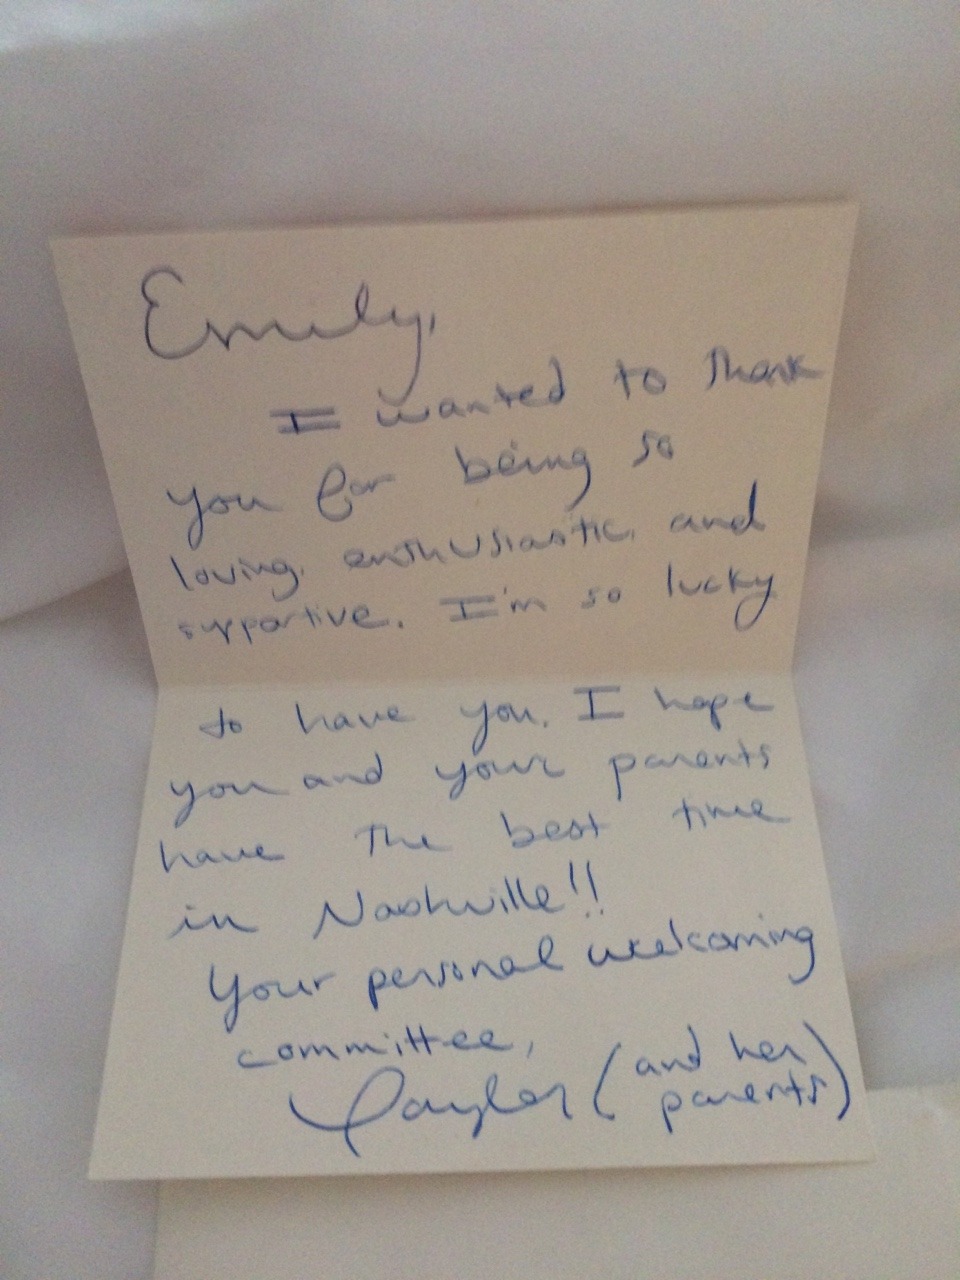 Emily,
I wanted to thank
you for being so
loving, enthusiastic, and
supportive. I'm so lucky
to have you. I hope
you and your parents
have the best time
in Nashville!!
Your personal welcoming
committee,
Taylor (and her
parents)